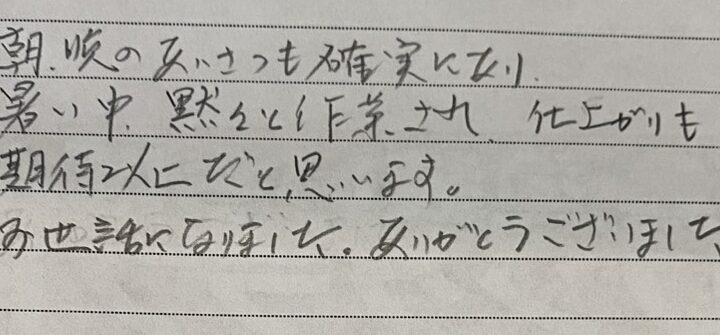 朝、晩のあいさつも確実にあり、
暑い中、黙々と作業され、仕上がりも
期待以上だと思います。
お世話になりました。ありがとうございました